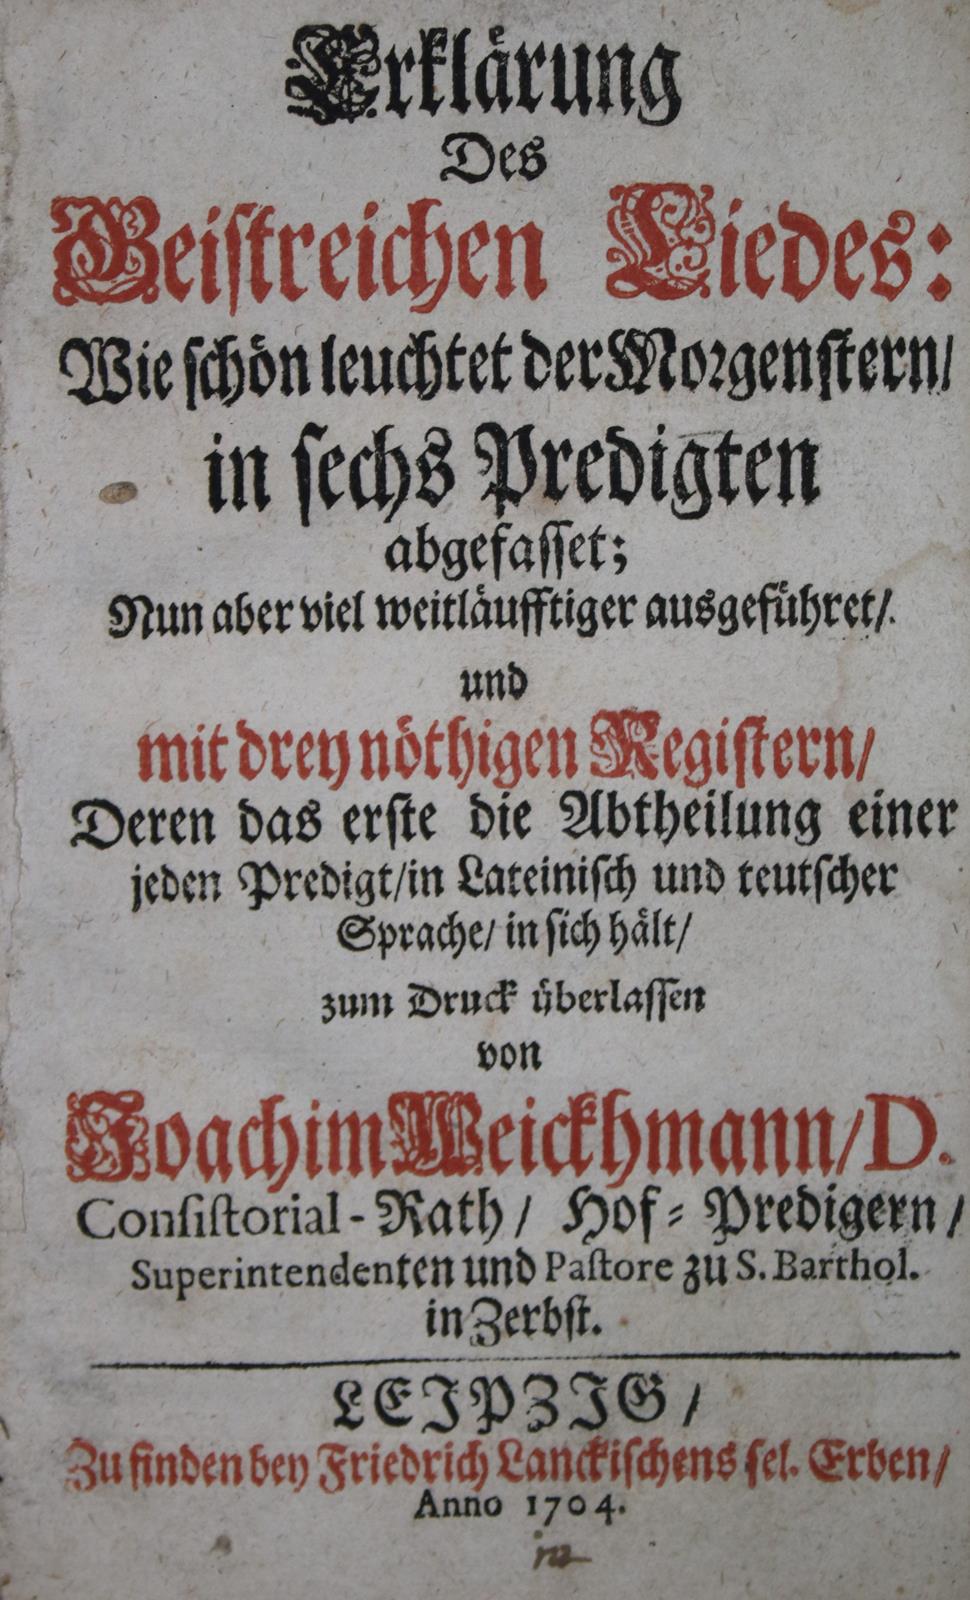 Erklärung
Des
Geistreichen Liedes:
Wie schön leuchtet der Morgenstern/
in sechs Predigten
abgefasset;
Nun aber viel weitläufftiger ausgeführet/
und
mit drey nöthigen Registern/
Deren das erste die Abtheilung einer
jeden Predigt/in Lateinisch und teutscher
Sprache/ in sich hält/
zum Druck überlassen
von
Joachim Weickhmann/D.
Consistorial-Rath/ Hof-Predigern/
Superintendenten und Pastore zu S. Barthol.
in Zerbst.
LEIPZIG/
Zu finden bey Friedrich Lanckischens sel. Erben/
Anno 1704.